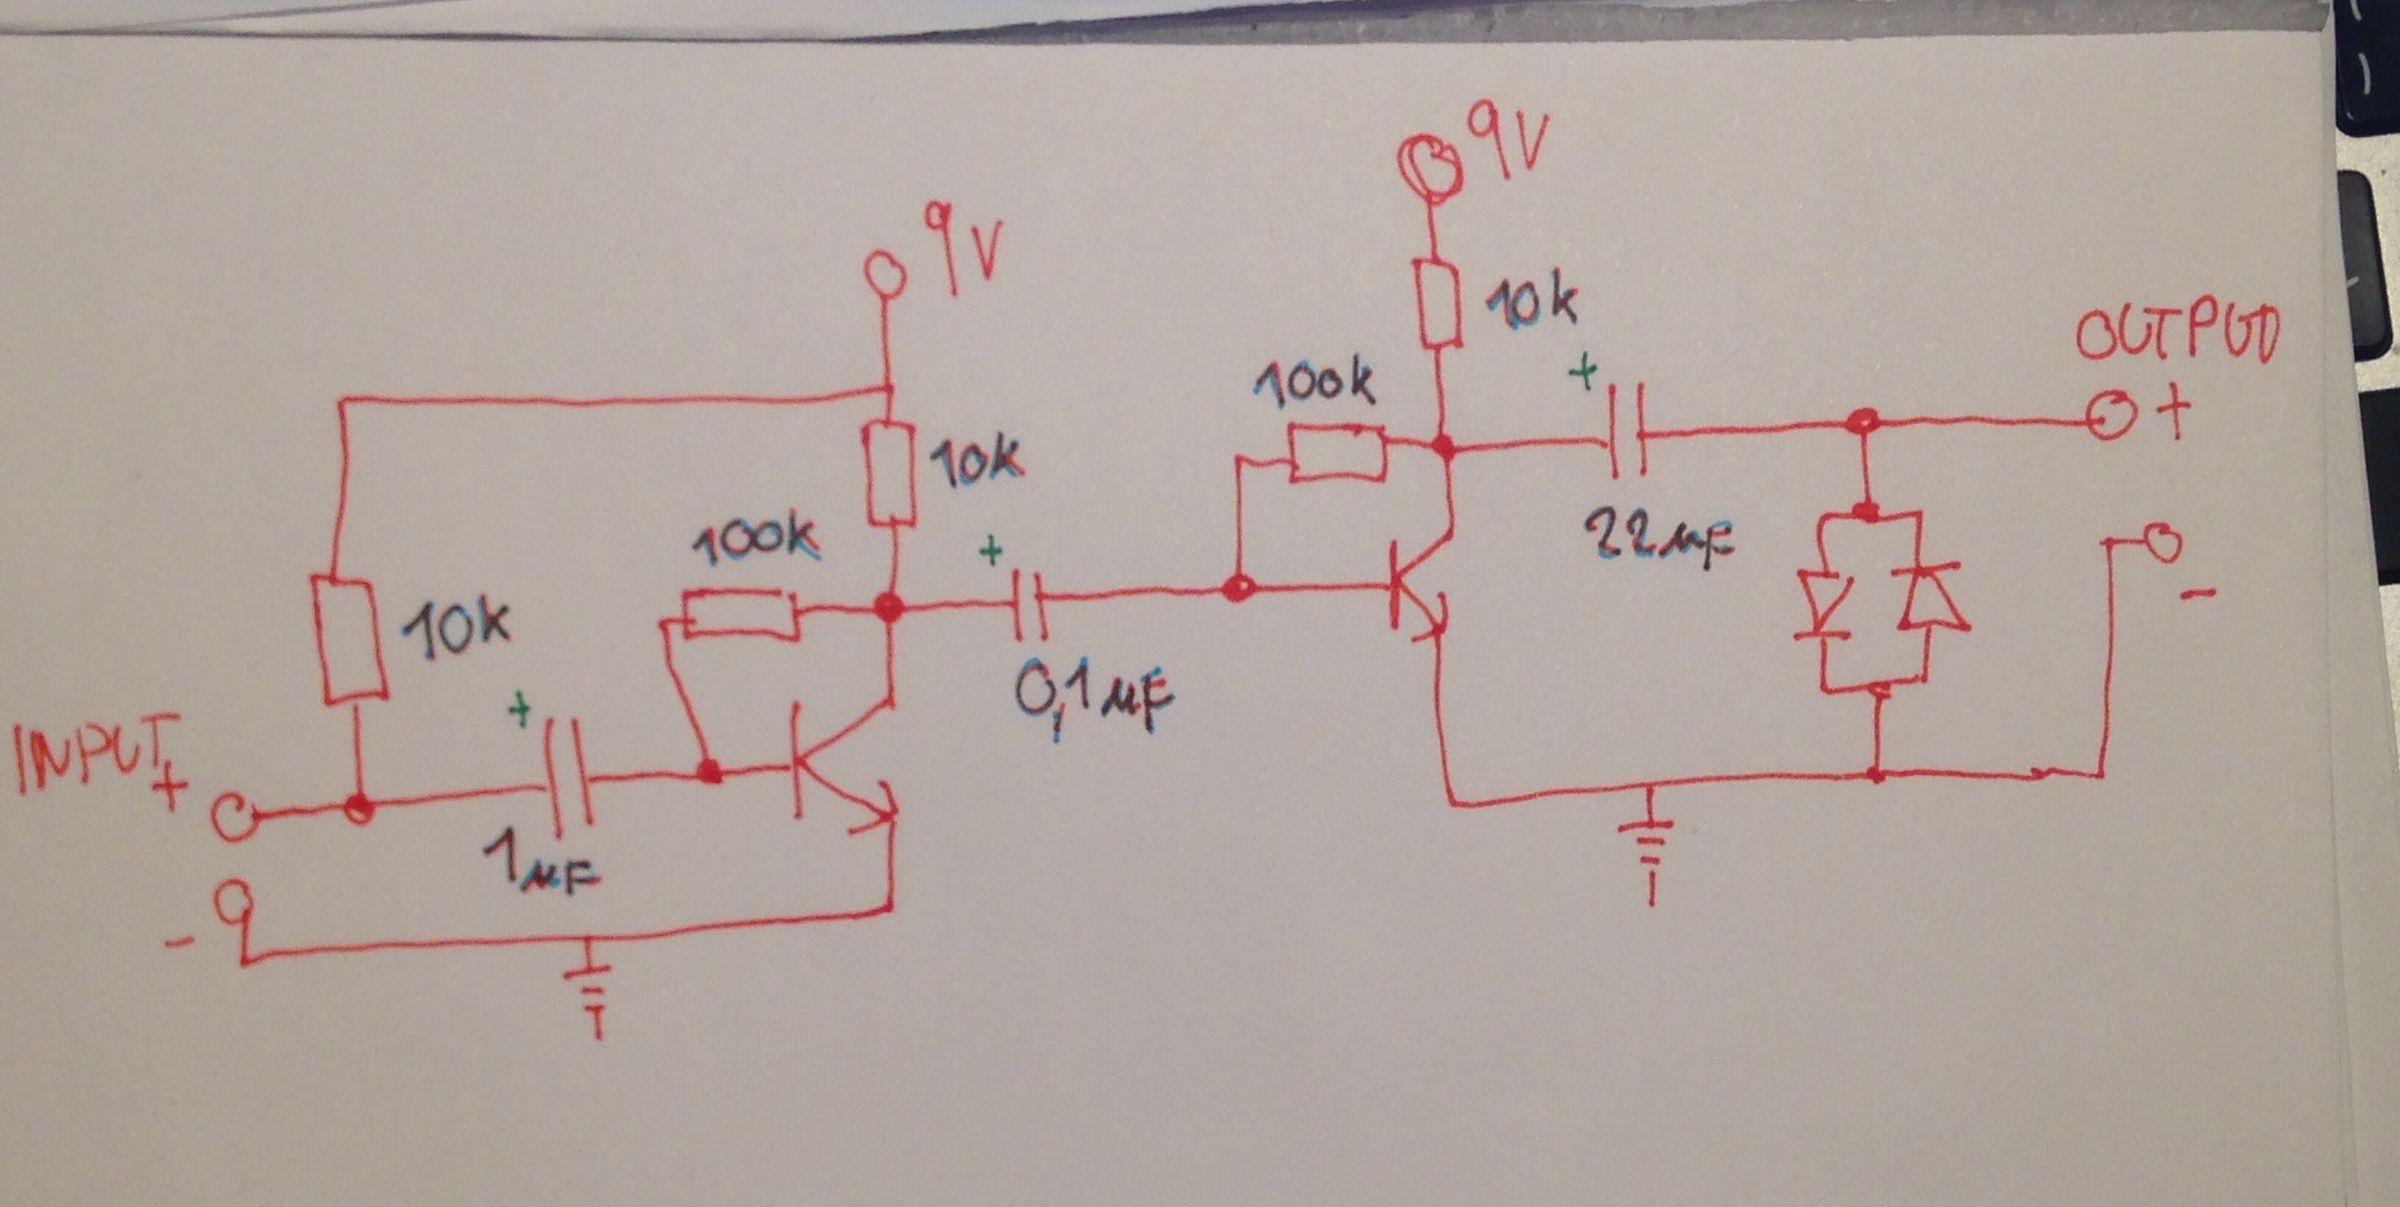 9V
9V
10k
OUTPUT
+
100k
+
10k
+
100k
22µF
-
10k
+
0,1µF
INPUT
+
1µF
-